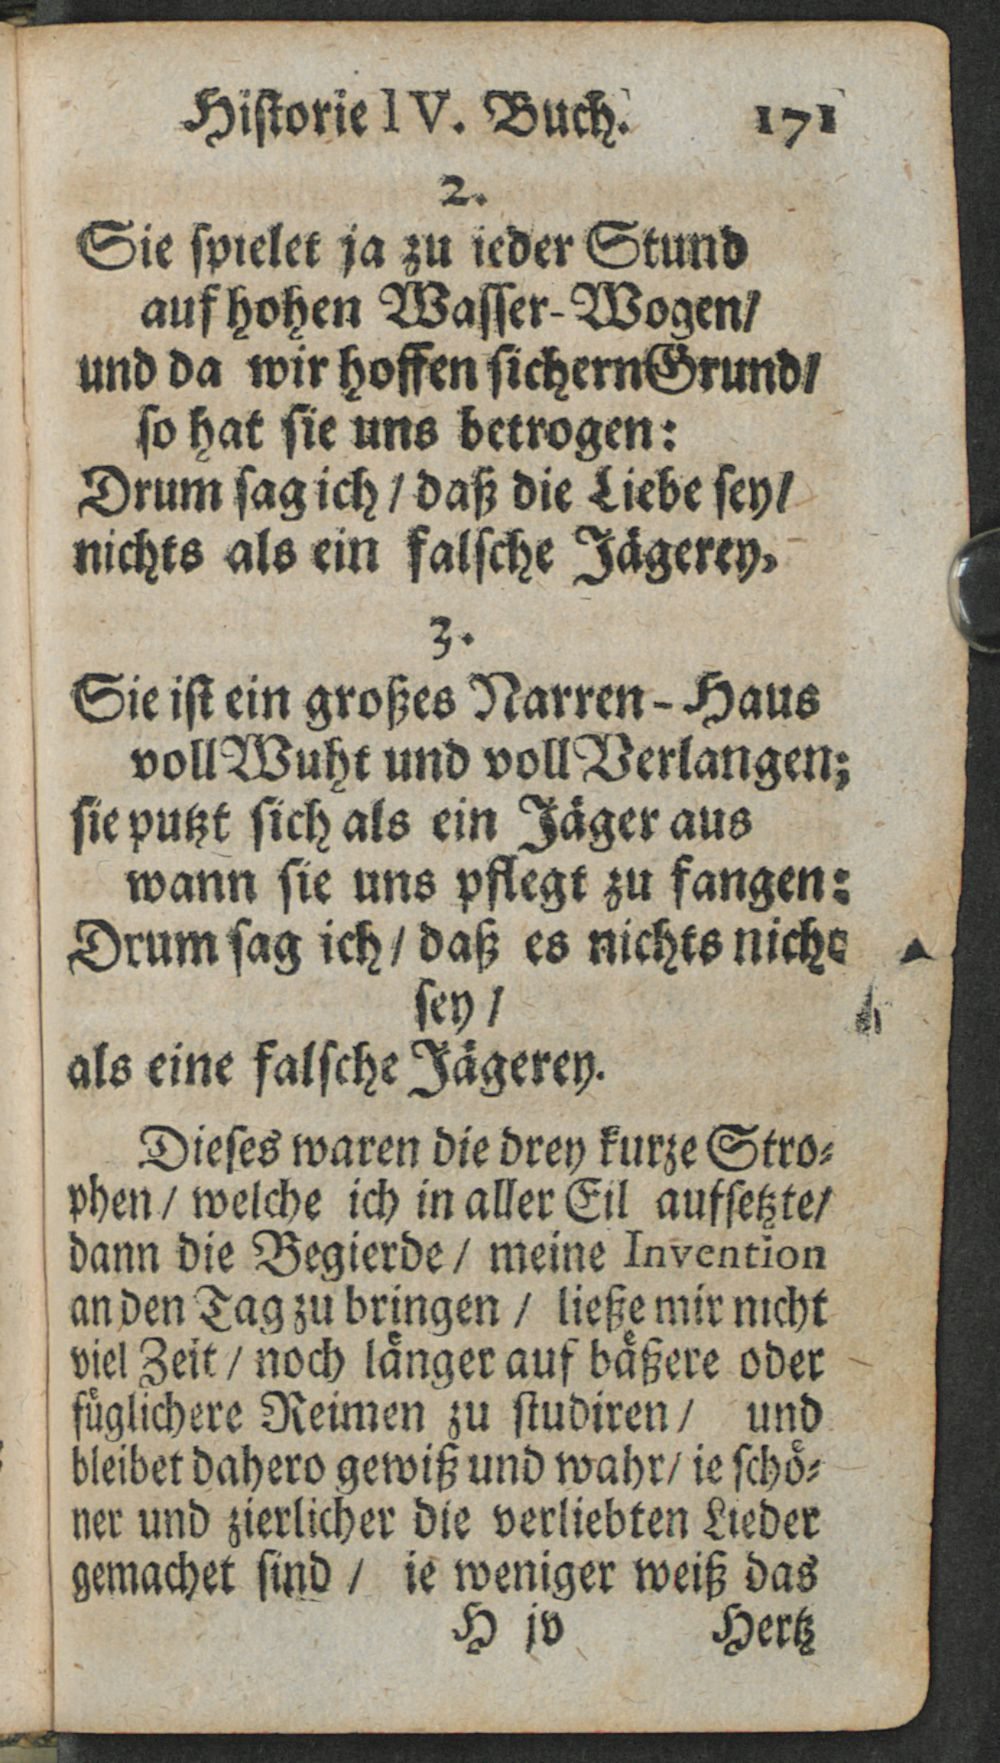 Historie IV. Buch. 171
2.
Sie spielet ja zu ieder Stund
auf hohen Wasser-Wogen/
und da wir hoffen sichern Grund/
so hat sie uns betrogen:
Drum sag ich / daß die Liebe sey/
nichts als ein falsche Jägerey.
3.
Sie ist ein großes Narren-Haus
voll Wuht und voll Verlangen;
sie putzt sich als ein Jäger aus
wann sie uns pflegt zu fangen:
Drum sag ich / daß es nichts nicht
sey /
als eine falsche Jägerey.
Dieses waren die drey kurze Stro-
phen / welche ich in aller Eil aufsetzte/
dann die Begierde / meine Invention
an den Tag zu bringen / ließe mir nicht
viel Zeit / noch länger auf bäßere oder
füglichere Reimen zu studiren / und
bleibet dahero gewiß und wahr / ie schö-
ner und zierlicher die verliebten Lieder
gemachet sind / ie weniger weiß das
H jv Hertz